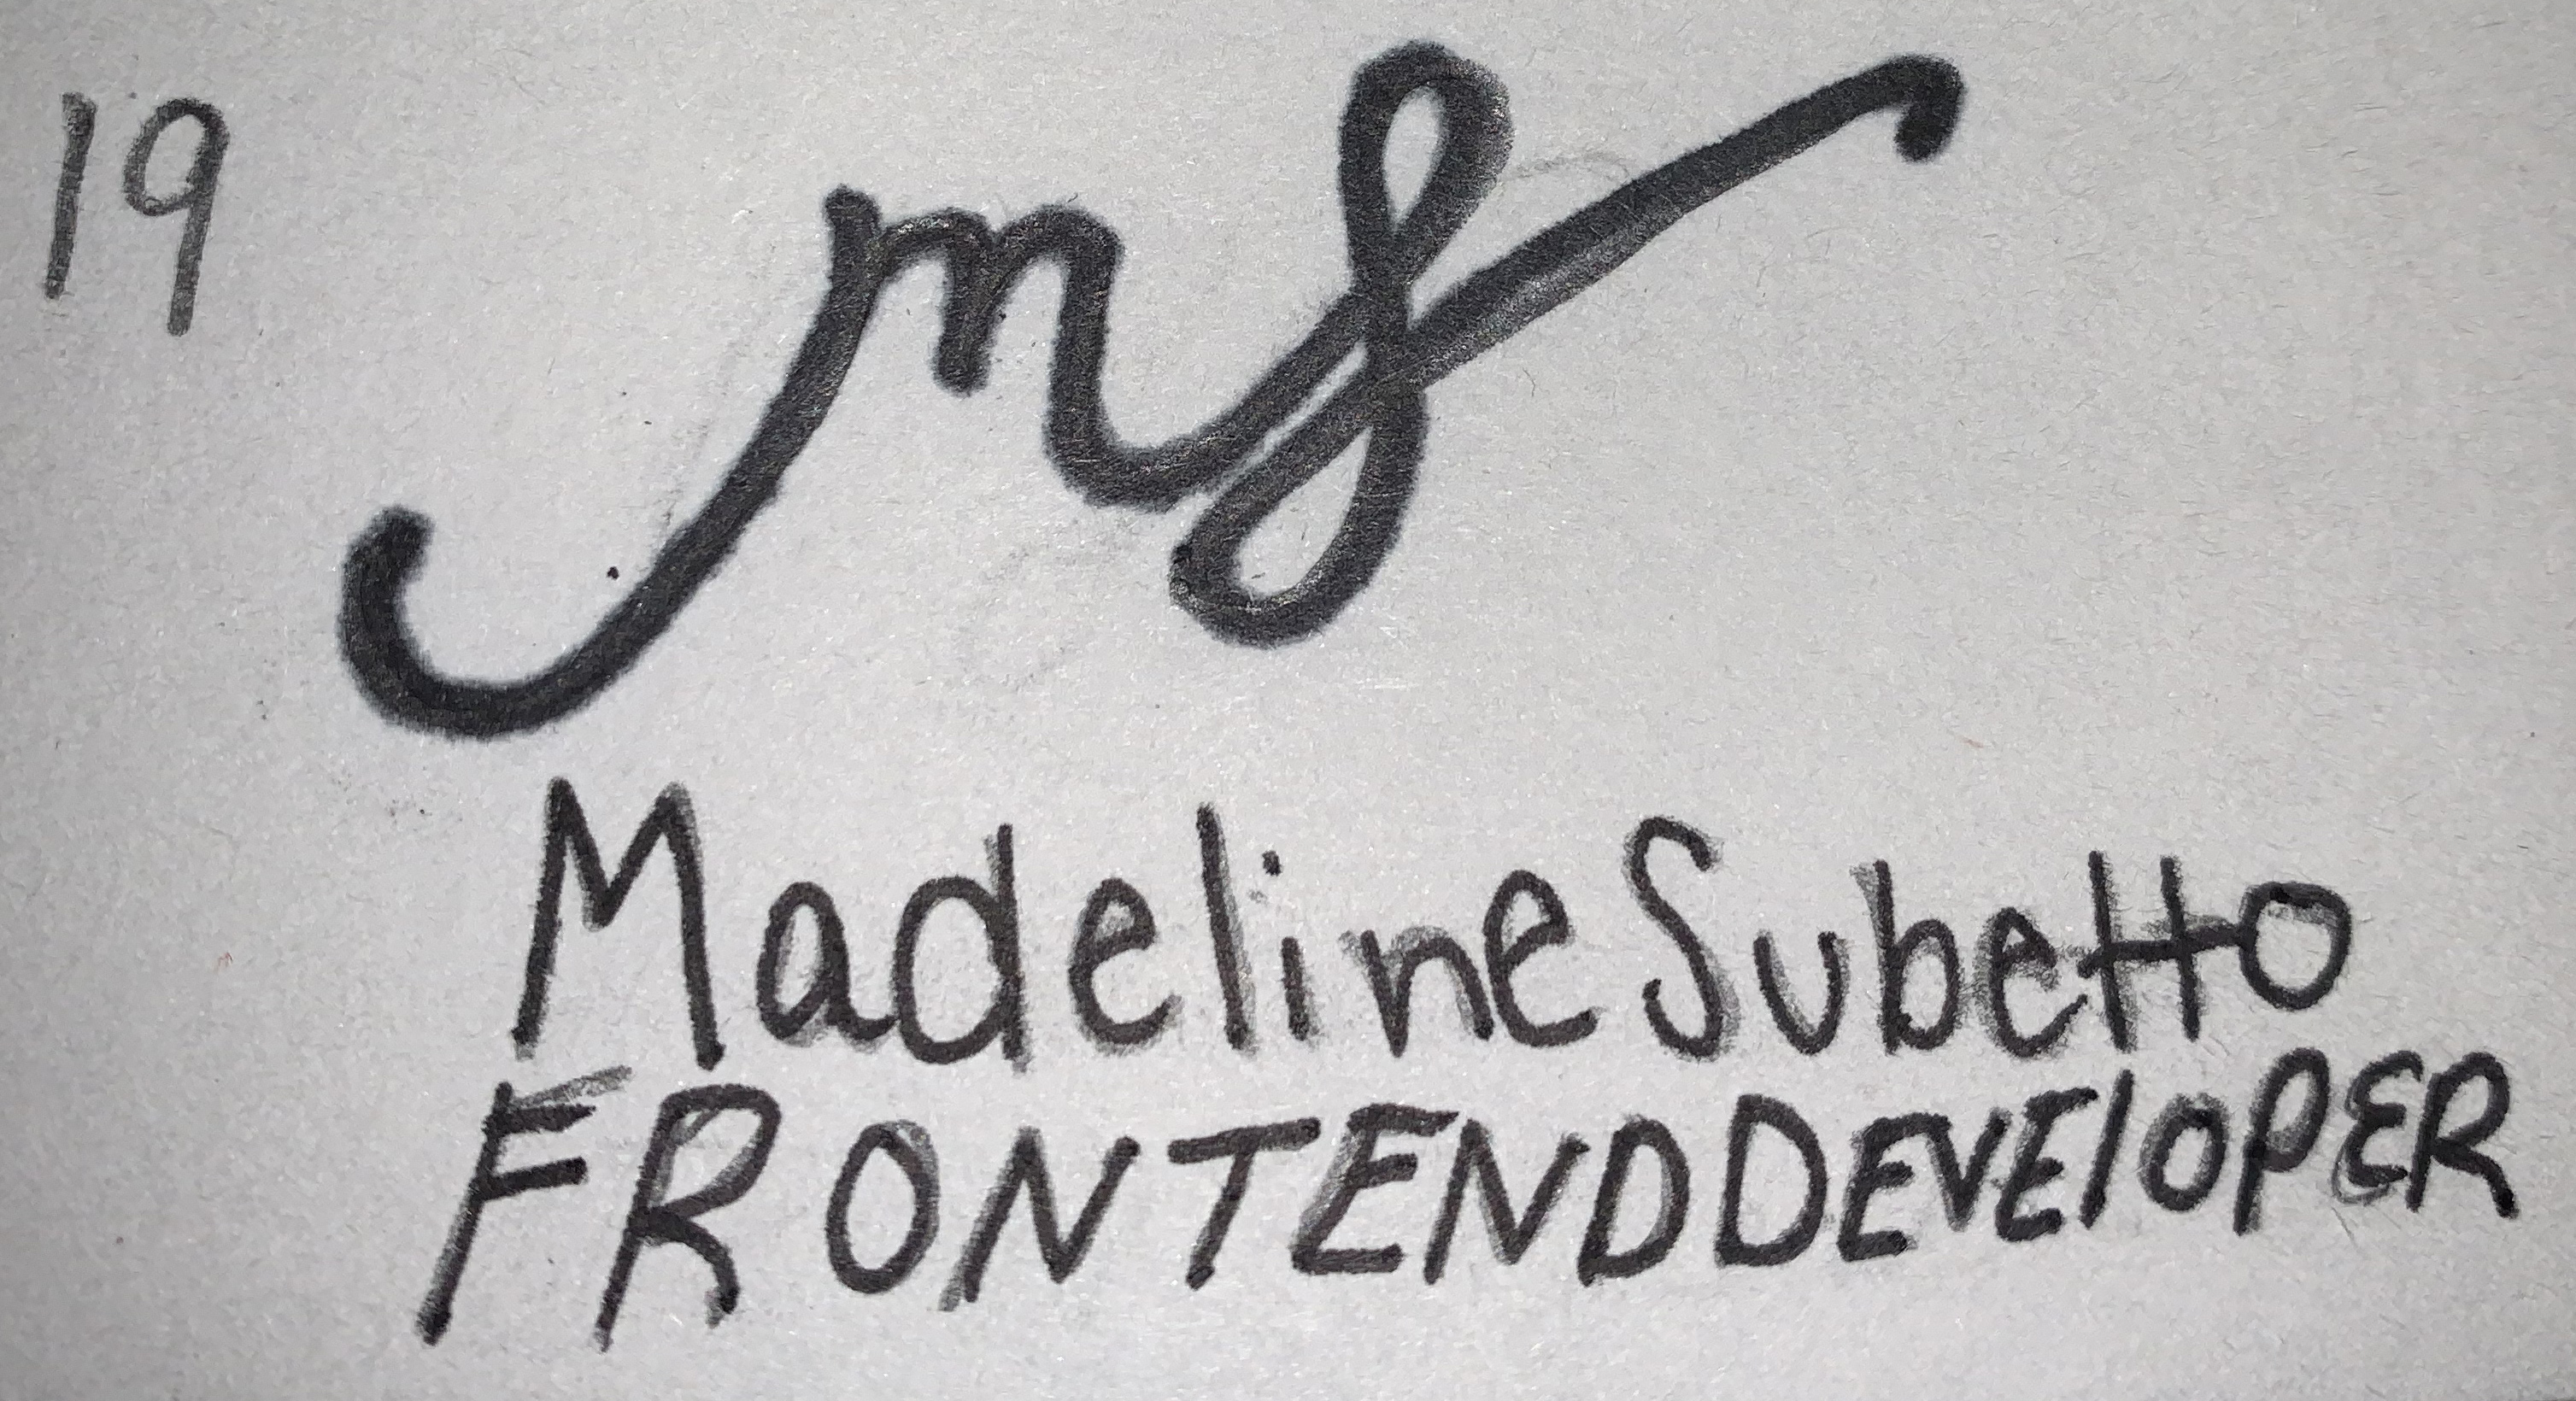 19
ms
Madeline Subetto
FRONTEND DEVElOPER